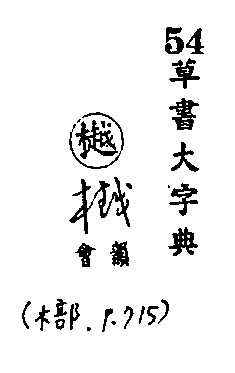 54
草書大字典
樾
樾
韻會
(木部. P.715)